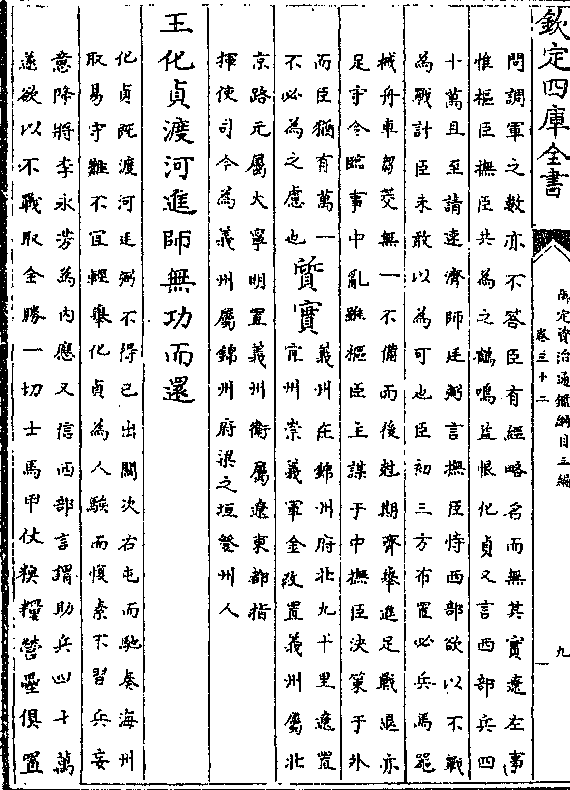 欽定四庫全書
御定資治通鑑綱目三編
卷三十二
九
問調軍之數亦不答臣有經略名而無其實遼左事
惟樞臣撫臣共為之鶴鳴益恨化貞又言西部兵四
十萬且至請速濟師廷弼言撫臣恃西部欲以不戰
為戰計臣未敢以為可也臣初三方布置必兵馬器
械舟車芻茭無一不備而後剋期齊舉進足戰退亦
足守今臨事中亂雖樞臣主謀于中撫臣決策于外
而臣猶有萬一
不必為之慮也
質實
義州在錦州府北九十里遼置
宜州崇義軍金改置義州屬北
京路元屬大寧明置義州衛屬遼東都指
揮使司今為義州屬錦州府梁之垣登州人
王化貞渡河進師無功而還
化貞既渡河廷弼不得已出關次右屯而馳奏海州
取易守難不宜輕舉化貞為人騃而愎素不習兵妄
意降將李永芳為內應又信西部言謂助兵四十萬
遂欲以不戰取全勝一切士馬甲仗糗糧營壘俱置